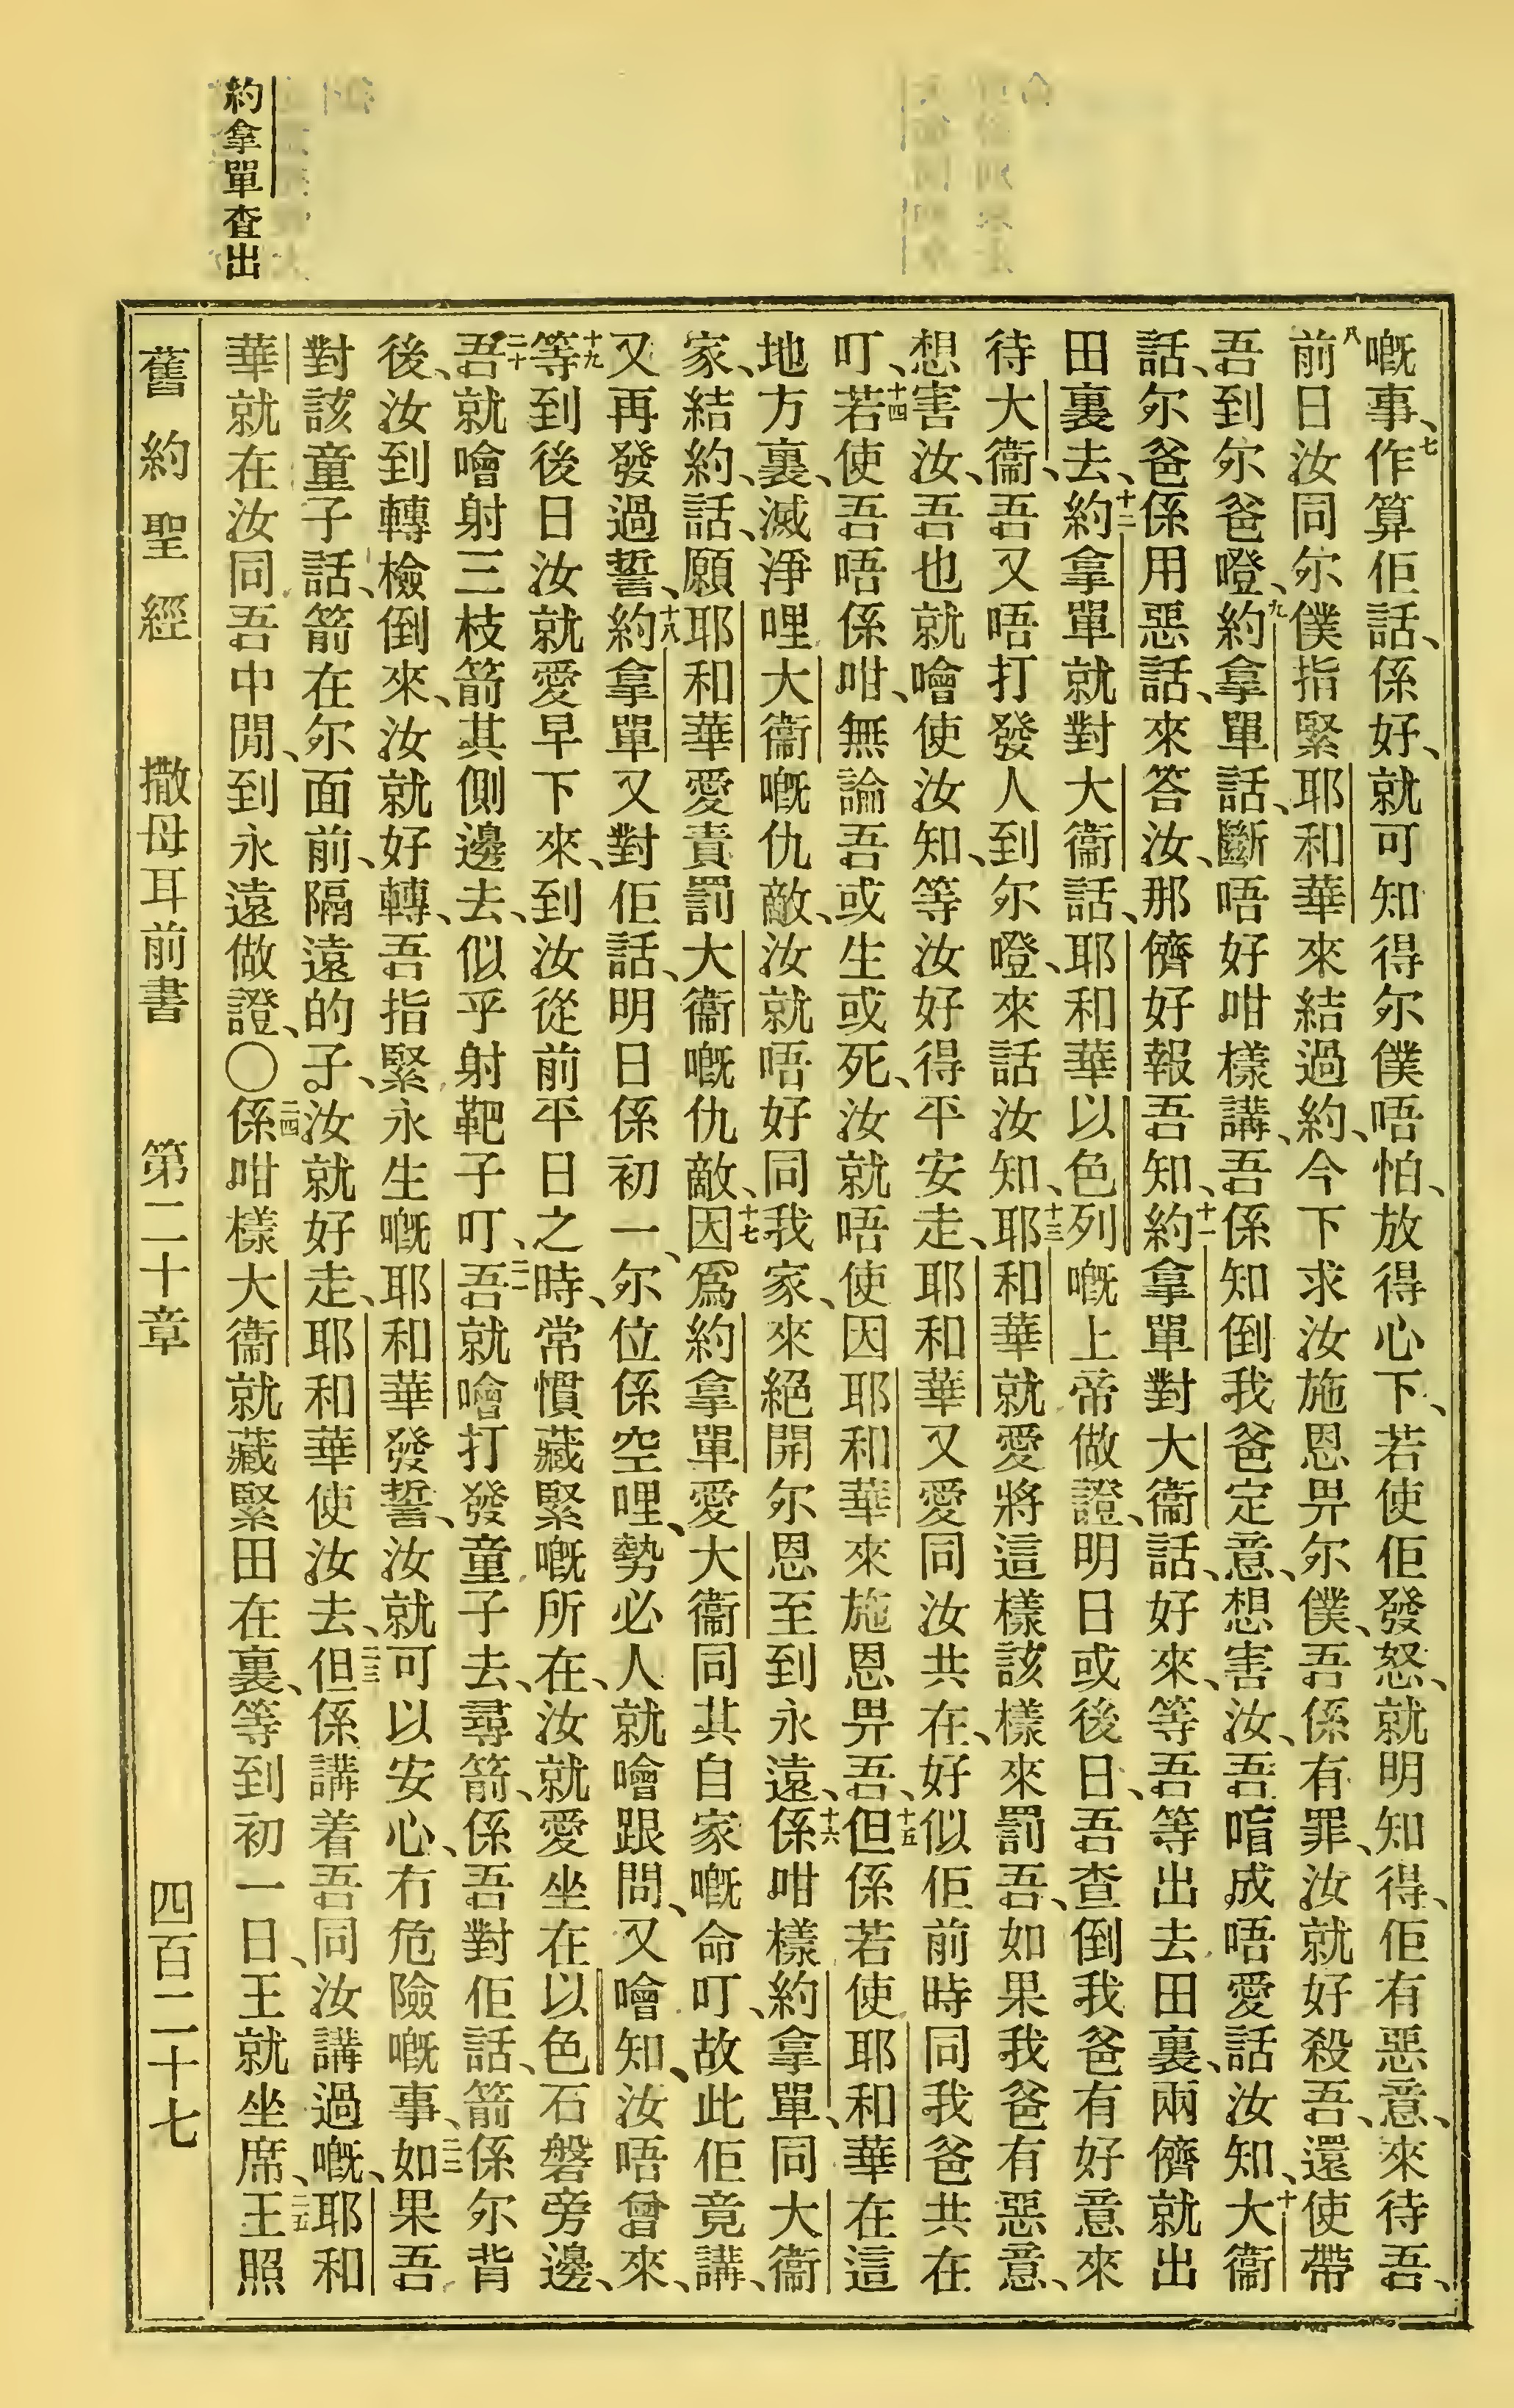 嘅事、七作算佢話、係好、就可知得尔僕唔怕、放得心下、若使佢發怒、就明知得、佢有惡意、來待吾、
八前日汝同尔僕指緊耶和華來結過約、今下求汝施恩畀尔僕、吾係有罪、汝就好殺吾、還使帶
吾到尔爸嶝、九約拿單話、斷唔好咁樣講、吾係知倒我爸定意、想害汝、吾唔成唔愛話汝知、十大衞
話、尔爸係用惡話、來答汝、那儕好報吾知、十一約拿單對大衞話、好來、等吾等出去田裏、兩儕就出
田裏去、十二約拿單就對大衞話、耶和華以色列嘅上帝做證、明日或後日、吾查倒我爸有好意來
待大衞、吾又唔打發人到尔嶝、來話汝知、十三耶和華就愛將這樣該樣來罰吾、如果我爸有惡意、
想害汝、吾也就噲使汝知、等汝好得平安走、耶和華又愛同汝共在、好似佢前時同我爸共在
叮、十四若使吾唔係咁、無論吾或生或死、汝就唔使因耶和華來施恩畀吾、十五但係若使耶和華在這
地方裏、滅淨哩大衞嘅仇敵、汝就唔好同我家、來絕開尔恩至到永遠、十六係咁樣約拿單、同大衞
家、結約、話、願耶和華愛責罰大衞嘅仇敵、十七因爲約拿單愛大衞同其自家嘅命叮、故此佢竟講、
又再發過誓、十八約拿單又對佢話、明日係初一、尔位係空哩、勢必人就噲跟問、又噲知、汝唔曾來、
十九等到後日汝就愛早下來、到汝從前平日之時、常慣藏緊嘅所在、汝就愛坐在以色石磐旁邊、
二十吾就噲射三枝箭其側邊去、似乎射靶子叮、二一吾就噲打發童子去、尋箭、係吾對佢話、箭係尔背
後、汝到轉檢倒來、汝就好轉、吾指緊永生嘅耶和華發誓、汝就可以安心、冇危險嘅事、二二如果吾
對該童子話、箭在尔面前、隔遠的子、汝就好走、耶和華使汝去、二三但係講着吾同汝講過嘅、耶和
華就在汝同吾中閒、到永遠做證、〇二四係咁樣大衞就藏緊田在裏、等到初一日、王就坐席、二五王照
約拿單查出
舊約聖經 撒母耳前書 第二十章 四百二十七